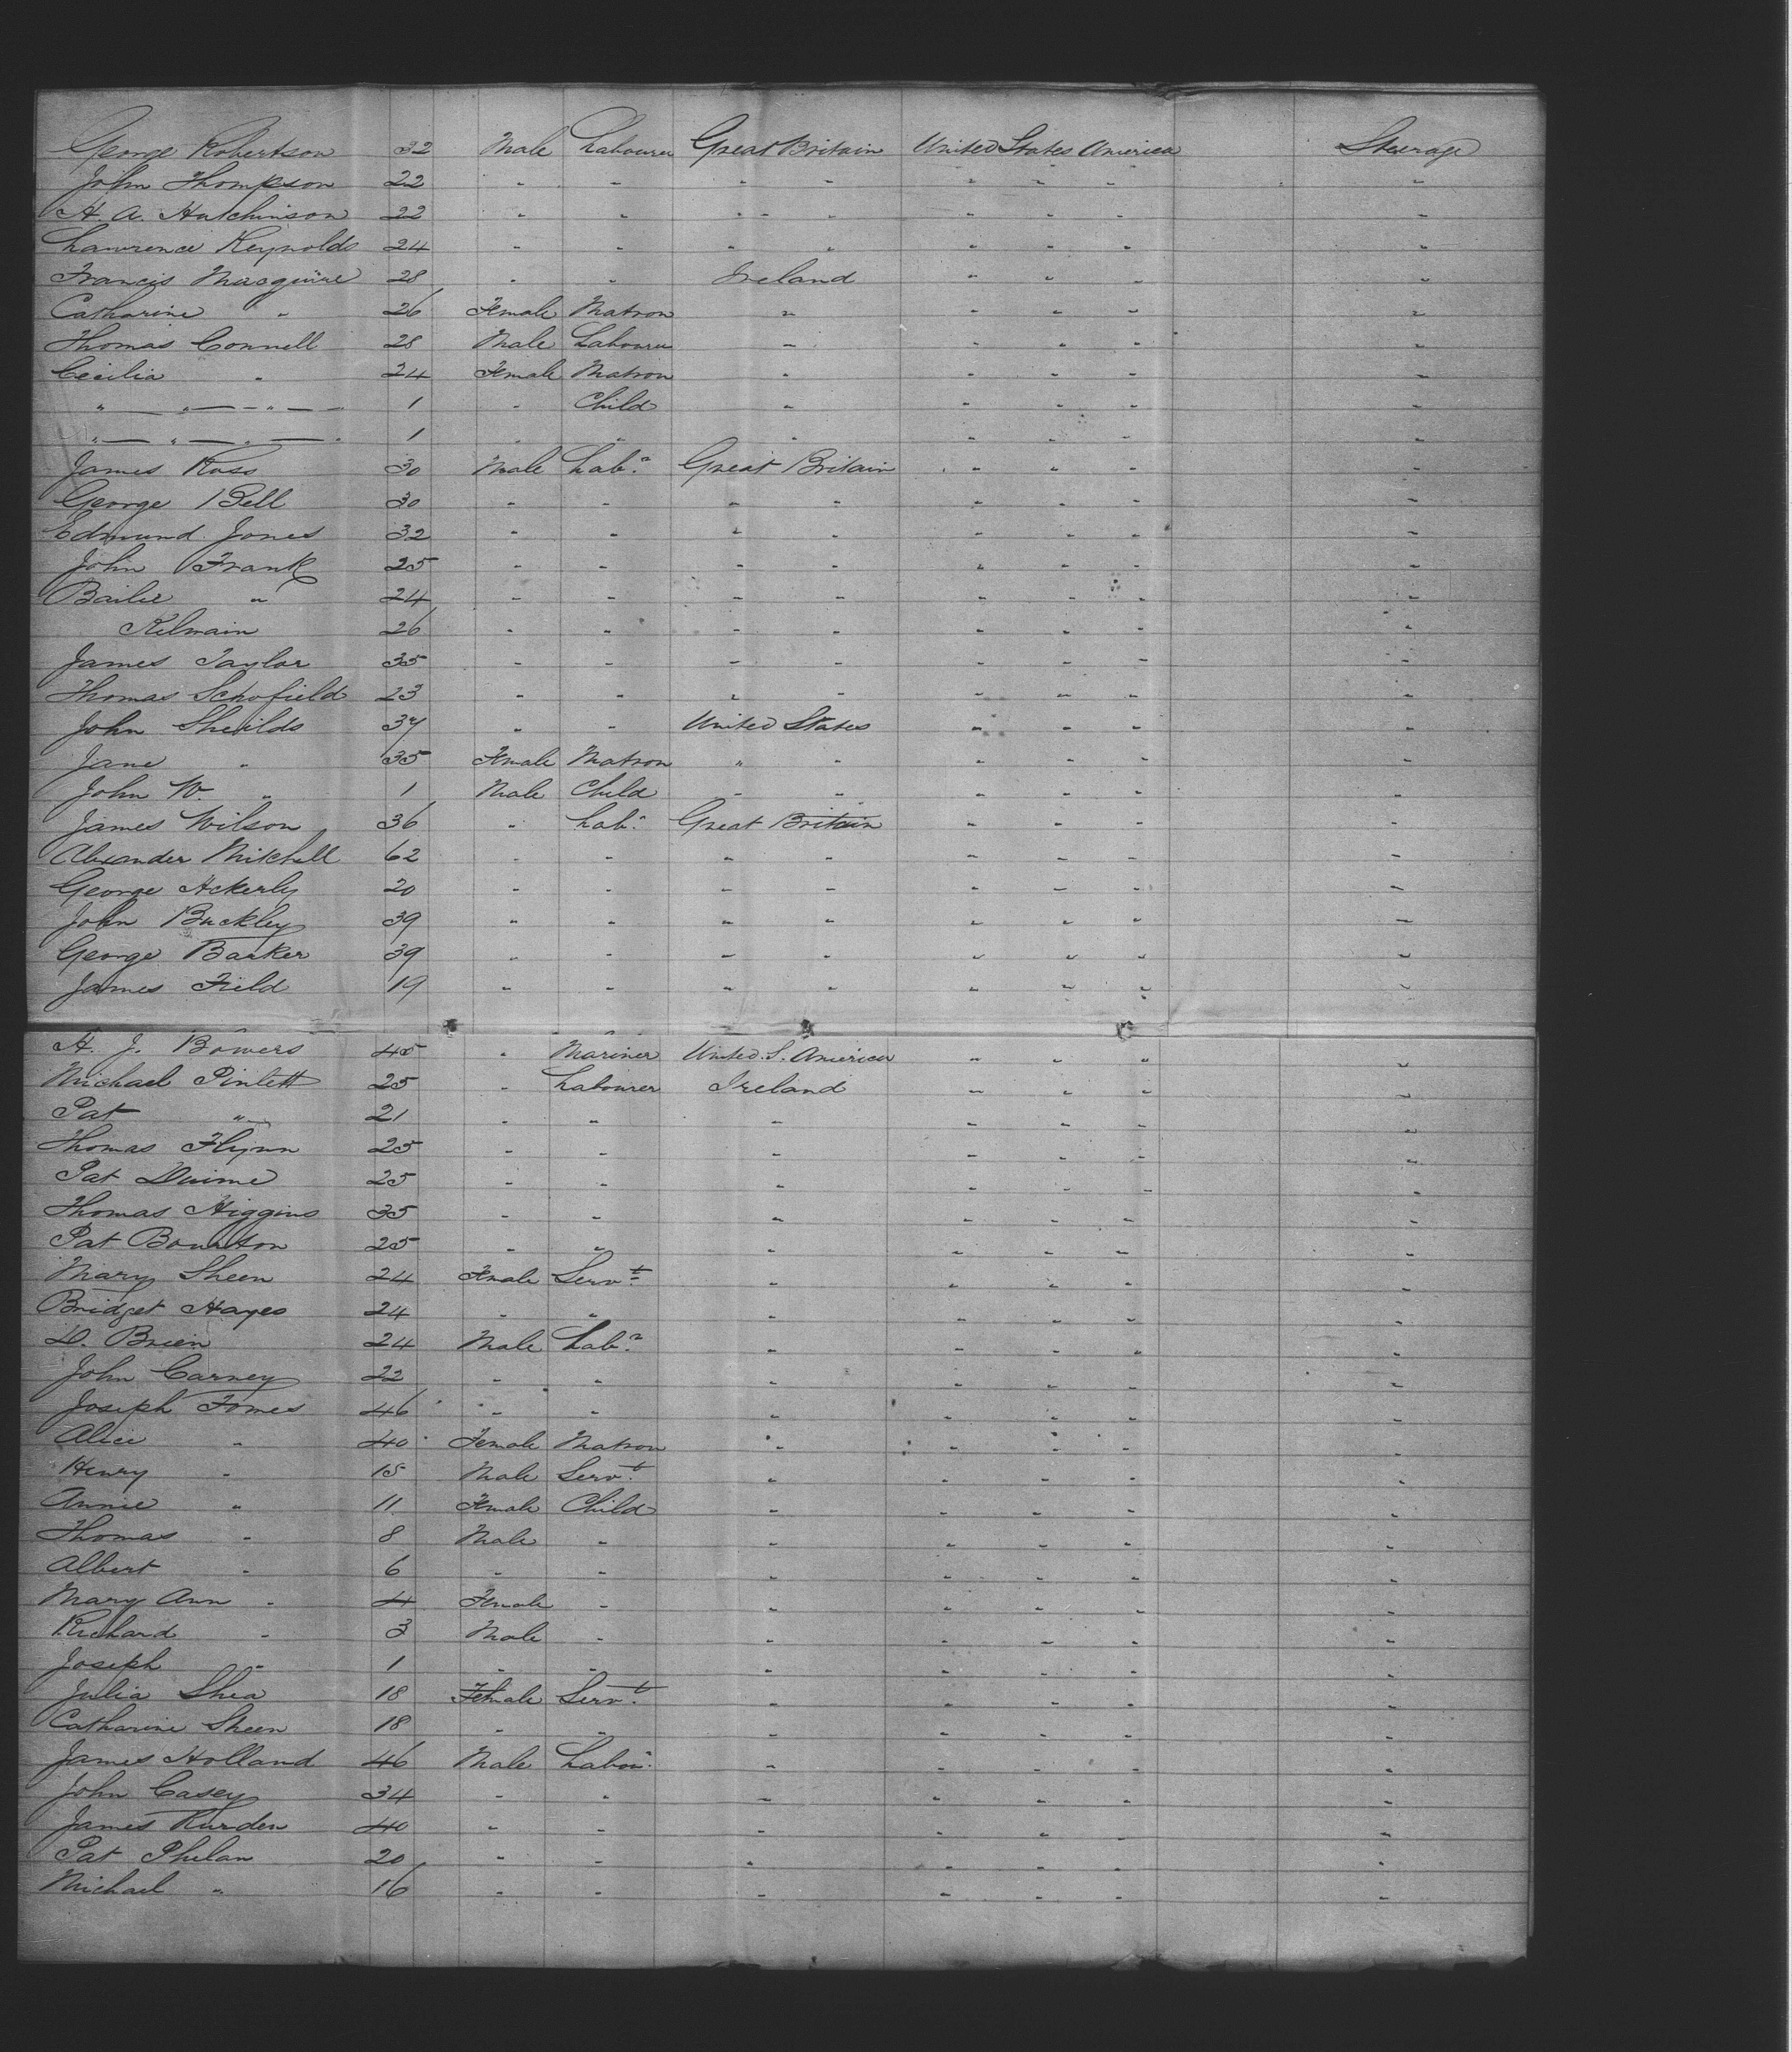 George Robertson 32 Male Labourer Great Britain United States America Steerage
John Thompson 22 " " " " " " " "
H. A. Hutchinson 22 " " " " " " " "
Lawrence Reynolds 24 " " " " " " " "
Francis Macguire 28 " " Ireland " " " "
Catharine " 26 Female Matron " " " " "
Thomas Connell 28 Male Labourer " " " " "
Cecilia " 24 Female Matron " " " " "
" " " 1 " Child " " " " "
" " " " 1 " " " " " " "
James Ross 30 Male Labr. Great Britain " " " "
George Bell 30 " " " " " " " "
Edmund Jones 32 " " " " " " " "
John Frank 25 " " " " " " " "
Bailie " 24 " " " " " " " "
Kilmain 26 " " " " " " " "
James Taylor 35 " " " " " " " "
Thomas Schofield 23 " " " " " " " "
John Sheilds 37 " " United States " " " "
Jane " 35 Female Matron " " " " " "
John W. " 1 Male Child " " " " " "
James Wilson 36 " Labr. Great Britain " " " "
Alexander Mitchell 62 " " " " " " " "
George Ackerly 20 " " " " " " " "
John Buckley 39 " " " " " " " "
George Barker 39 " " " " " " " "
James Field 19 " " " " " " " "
H. J. Bowers 45 " Mariner United. S. America " " " "
Michael Pinlett 25 " Labourer Ireland " " " "
Pat " 21 " " " " " " "
Thomas Flynn 25 " " " " " " "
Pat 25 " " " " " " "
Thomas Higgins 35 " " " " " " "
Pat Bourton 25 " " " " " " "
Mary Sheen 24 Female Servt. " " " " "
Bridget Hayes 24 " " " " " " "
D. Brien 24 Male Labr. " " " " "
John Carney 22 " " " " " " "
Joseph Fomes 46 " " " " " " "
Alice " 40 Female Matron " " " " "
Henry " 15 Male Servt. " " " " "
Annie " 11 Female Child " " " " "
Thomas " 8 Male " " " " " "
Albert " 6 " " " " " " "
Mary Ann " 4 Female " " " " " "
Richard " 3 Male " " " " " "
Joseph " 1 " " " " " " "
Julia Shea 18 Female Servt. " " " " "
Catharine Sheen 18 " " " " " " "
James Holland 46 Male Labour. " " " " "
John Casey 34 " " " " " " "
James Rurden 40 " " " " " " "
Pat Phelan 20 " " " " " " "
Michael " 16 " " " " " " "